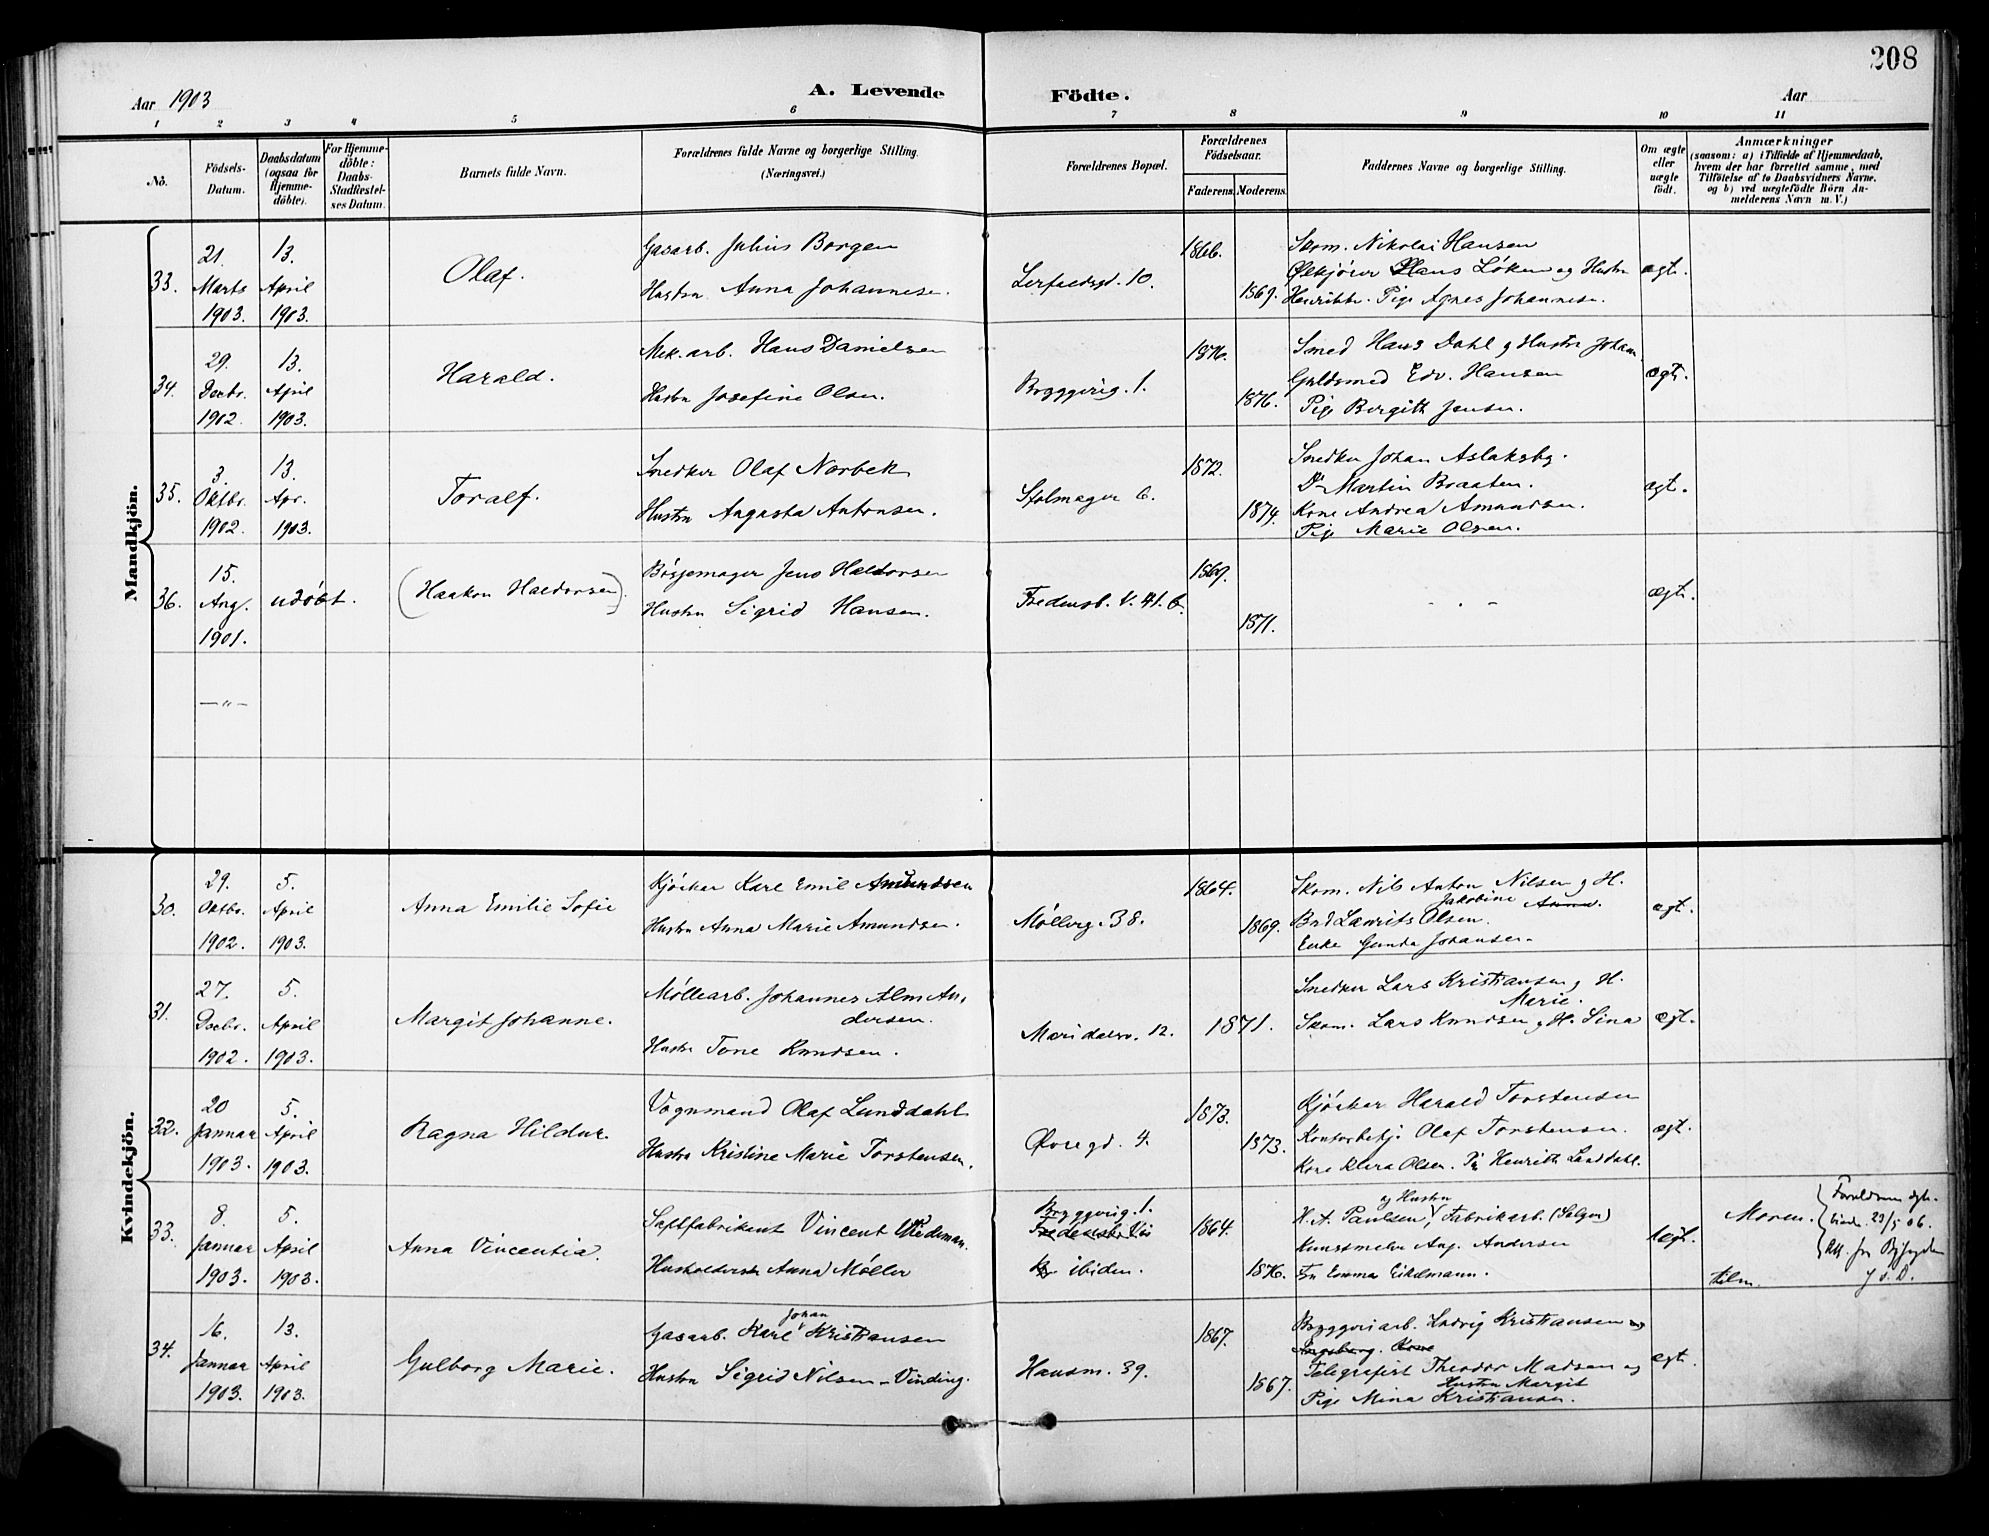 208
Aar 1903
A. Levende Födte.
Aar
1 2 3 4 5 6 7 8 9 10 11
No.
Födsels-Datum.
Daabsdatum (ogsaa for Hjemme-döbte).
For Hjemme-döbte: Daabs-Stadfæstel-ses Datum.
Barnets fulde Navn.
Forældrenes fulde Navne og borgerlige Stilling.
(Næringsvei.)
Forældrenes Bopæl.
Forældrenes Födselsaar.
Faderens. Moderens.
Faddernes Navne og borgerlige Stilling.
Om ægte eller uægte födt.
Anmærkninger
(saasom: a) i Tilfælde af Hjemmedaab,
hvem der har forrettet samme, med
Tilföielse af to Daabsvidners Navne,
og b) ved uægtefödte Börn An-
melderens Navn m. V.)
Mandkjön.
33. 21. Marts 1903. 13. April 1903.
Olaf.
Gasarb. Julius Borgen
Hustru Anna Johannesen.
10.
1866.
1869.
Skom. Nikolai Hansen
Ølkjører Hans Løken og Hustru
Henrikke. Pige Agnes Johannesen.
ægt.
34. 29. Decbr. 1902. 13. April 1903.
Harald.
Mek. arb. Hans Danielsen
Hustru Josefine Olsen.
Bryggerig. 1.
1876.
1876.
Smed Hans Dahl og Hustru Johan.
Guldsmed Edv. Hansen
Pige Borgith Jensen.
ægt.
35. 3. Oktbr. 1902. 13. Apr. 1903.
Toralf.
Snedker Olaf Norbek
Hustru Augusta Antonsen.
Stolmager 6.
1872.
1874.
Snedker Johan Aslaksby.
Do Martin Braaten.
Kone Andrea Amundsen.
Pige Marie Olsen.
ægt.
36. 15. Aug. 1901. udøbt.
(Haakon Haldorsen).
Børsemager Jens Haldorsen
Hustru Sigrid Hansen.
Fredensb. V. 41. b.
1869.
1871.
- „ -
ægt.
— „ —
Kvindekjön.
30. 29. Oktbr. 1902. 5. April 1903.
Anna Emilie Sofie
Kjørker Karl Emil Amundsen
Hustru Anna Marie Amundsen.
Møllerg. 38.
1864.
1869.
Skom. Nils Anton Nilsen og H.
Jakobine Anna.
Laurits Olsen.
Enke Gunda Johansen.
ægt.
31. 27. Decbr. 1902. 5. April 1903.
Margit Johanne.
Møllearb. Johannes Alm An-
dersen.
Hustru Tone Knudsen.
Maridalsv. 12.
1871.
Snedker Lars Kristiansen og H.
Marie.
Skom. Lars Knudsen og H. Lina
ægt.
32. 20 Januar 1903. 5. April 1903.
Ragna Hildur.
Vognmand Olaf Lunddahl
Hustru Kristine Marie Torstensen.
Øvregd. 4.
1873.
1873.
Kjørker Harald Torstensen
Kontorbetj. Olaf Torstensen.
Kone Klara Olsen. Pi. Henritte Landdahl.
ægt.
33. 8. Januar 1903. 5. April 1903.
Anna Vincentia.
Saftfabrikant Vincent Wiedeman.
Husholderske Anna Møller
Bryggerig. 1.
ibidem.
1864.
1876.
og Hustru
H. A. Paulsen, Fabrikarb. (Selger)
Kunstmaler Aug. Andersen
Fru Emma Eikelmann.
uægt.
Moren.
Forældrene ægte-
viede 23/5 06.
Att. fra Byfogden
J. d. D.
34. 16. Januar 1903. 13. April 1903.
Gulborg Marie.
Johan
Gasarb. Karl Kristiansen
Hustru Sigrid Nilsen-Vinding.
Hausm. 39.
1867.
1867.
Bryggeriarb. Ludvig Kristiansen og
Ingeborg. Kone
Telegrafist Theodor Madsen og
Hustru Margit
Pige Mina Kristiansen.
ægt.